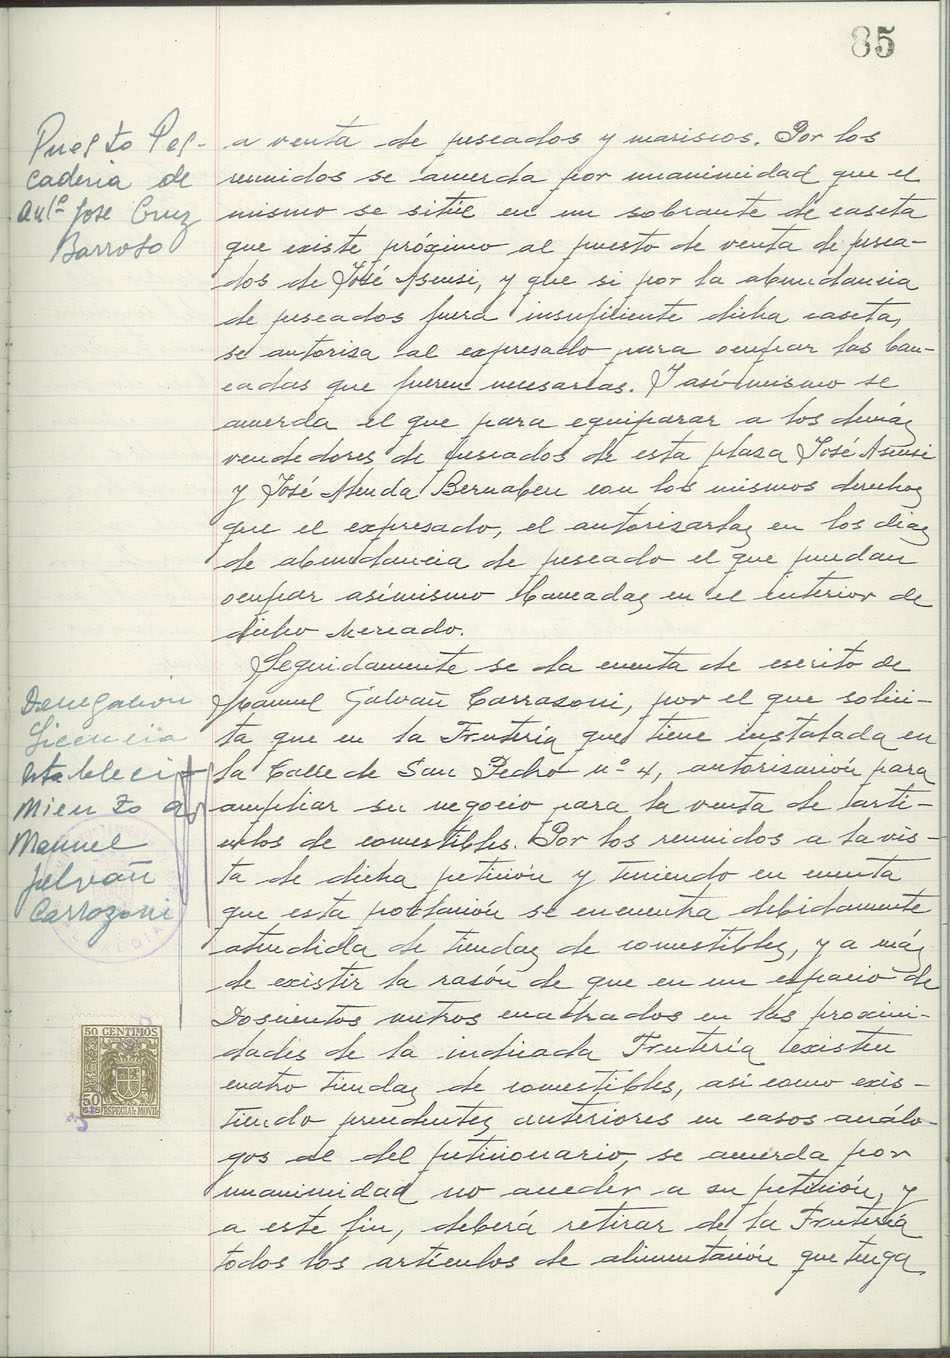 85
Puesto Pes-
cadería de
Antº José Cruz
Barroso
a venta de pescados y mariscos. Por los
reunidos se acuerda por unanimidad que el
mismo se sitúe en un sobrante de caseta
que existe próximo al puesto de venta de pesca-
dos de José Asensi, y que si por la abundancia
de pescados fuera insuficiente dicha caseta,
se autoriza al expresado para ocupar las ban-
cadas que fueren necesarias. Y asi mismo se
acuerda el que para equiparar a los demás
vendedores de pescados de esta plaza José Asensi
y José Asenda Bernabeu con los mismos derechos
que el expresado, el autorizarlas en los dias
de abundancia de pescado el que puedan
ocupar asimismo bancadas en el interior de
dicho Mercado.
Seguidamente se da cuenta de escrito de
Manuel Galvañ Carrasoni, por el que solici-
ta que en la Frutería que tiene instalada en
la Calle de San Pedro nº 4, autorización para
ampliar su negocio para la venta de arti-
culos de comestibles. Por los reunidos a la vis-
ta de dicha petición y teniendo en cuenta
que esta población se encuentra debidamente
atendida de tiendas de comestibles, y a más
de existir la rasón de que en un espacio de
Doscientos metros cuadrados en las proximi-
dades de la indicada Frutería existen
cuatro tiendas de comestibles, asi como exis-
tiendo precedentes anteriores en casos análo-
gos al del peticionario, se acuerda por
unanimidad no acceder a su petición, y
a este fin, deberá retirar de la Frutería
todos los artículos de alimentación que tenga
Denegación
Licencia
Estableci-
miento a
Manuel
Galvañ
Carrozoni
ALCALDIA
50 CENTIMOS
50
CTS
ESPECIAL MOVIL